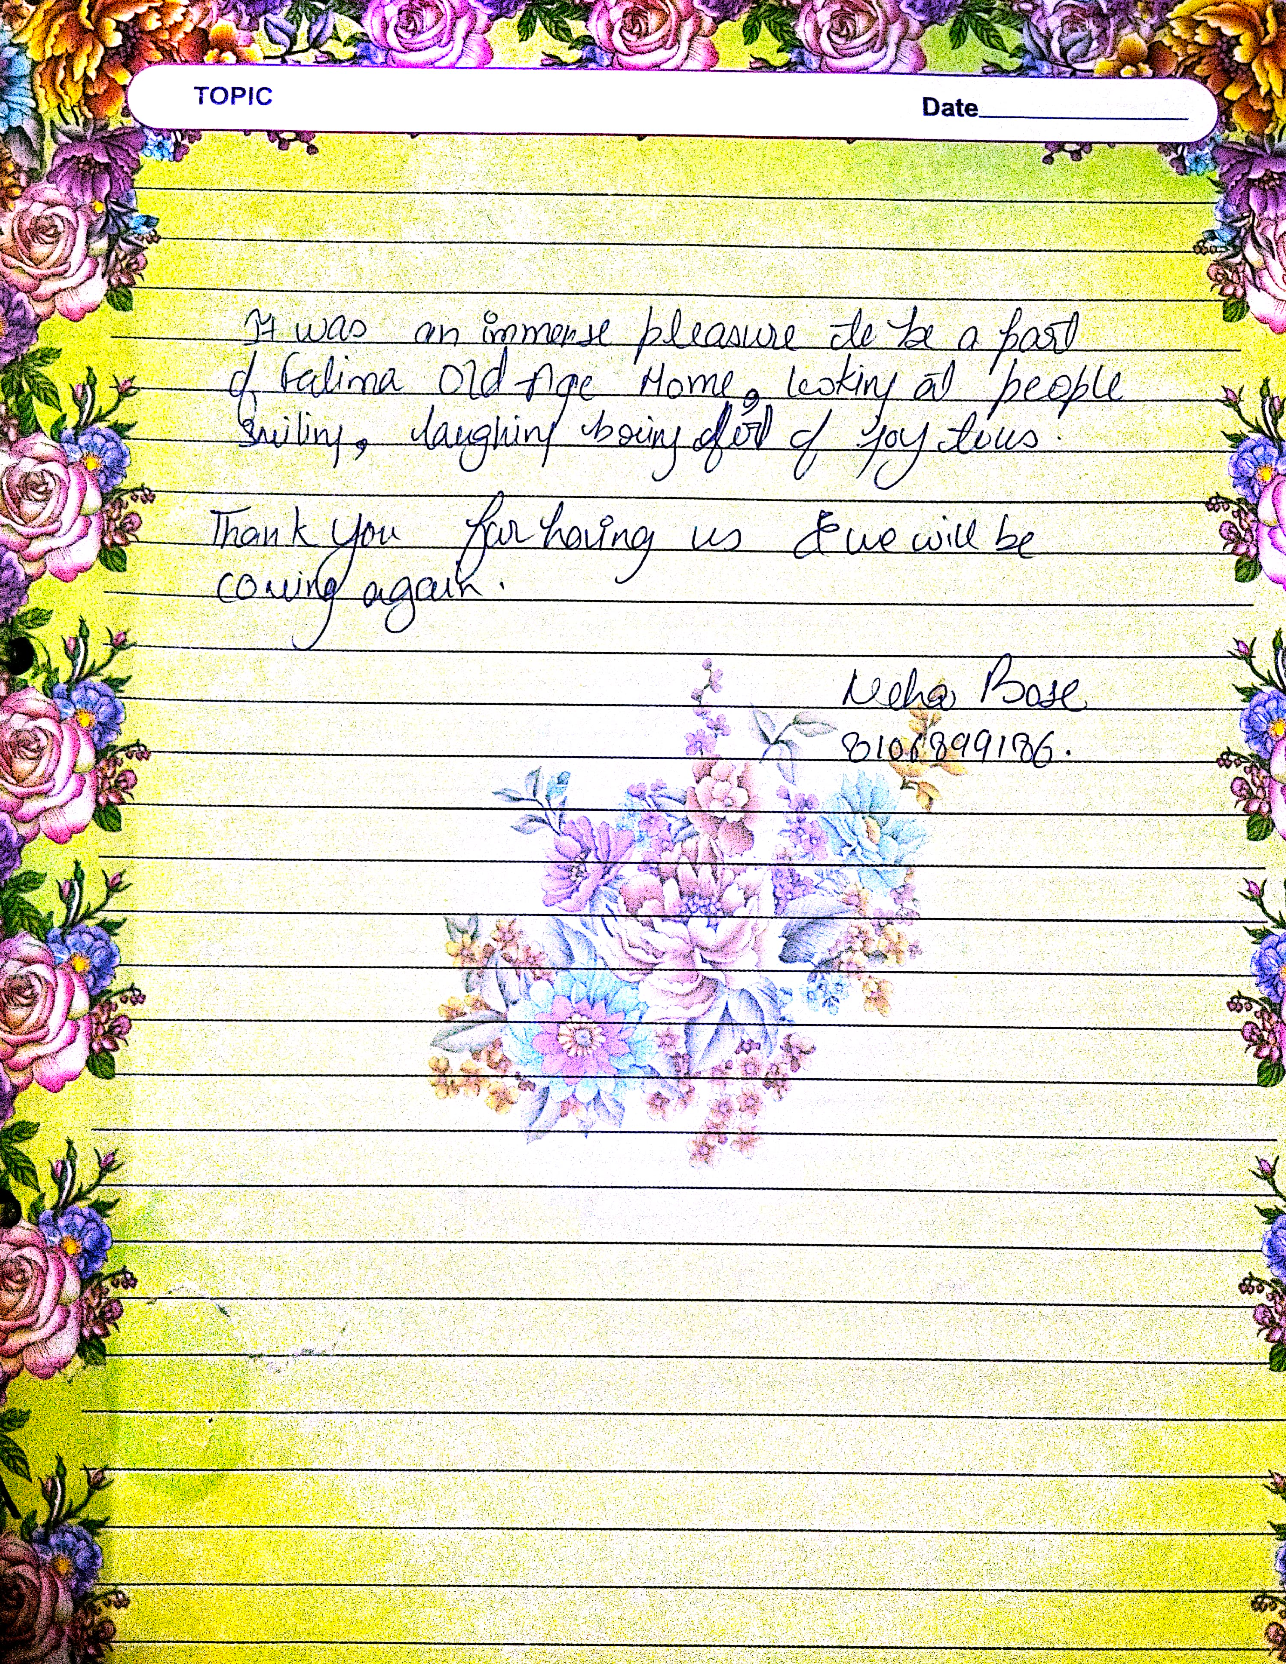 TOPIC
Date
It was an immense pleasure to be a part
of Fatima Old Age Home, looking at people
Smiling, laughing being of joy tous.
Thank you for having us & we will be
coming again.
Neha Bose
8101899186.